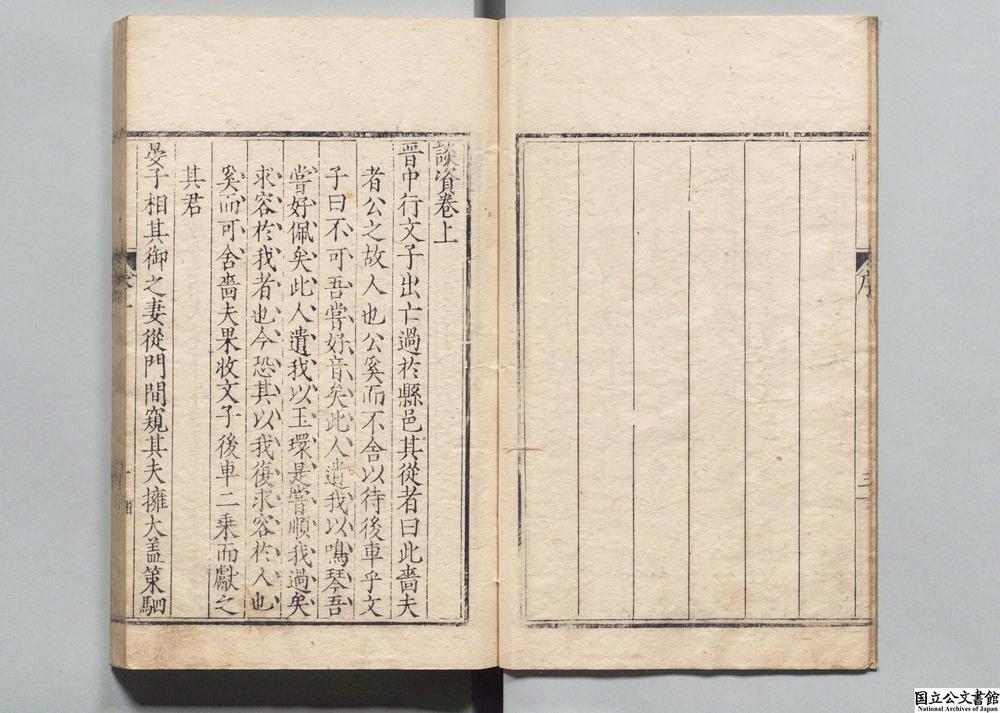 序
三
談資卷上
晉中行文子出亡過於縣邑其從者曰此嗇夫
者公之故人也公奚而不舍以待後車乎文
子曰不可吾嘗好音矣此人遺我以鳴琴吾
嘗好佩矣此人遺我以玉環是嘗順我過矣
求容於我者也今恐其以我復求容於人也
奚而可舍嗇夫果收文子後車二乘而獻之
其君
晏子相其御之妻從門間窺其夫擁大盖策駟
國立公文書館
National Archives of Japan